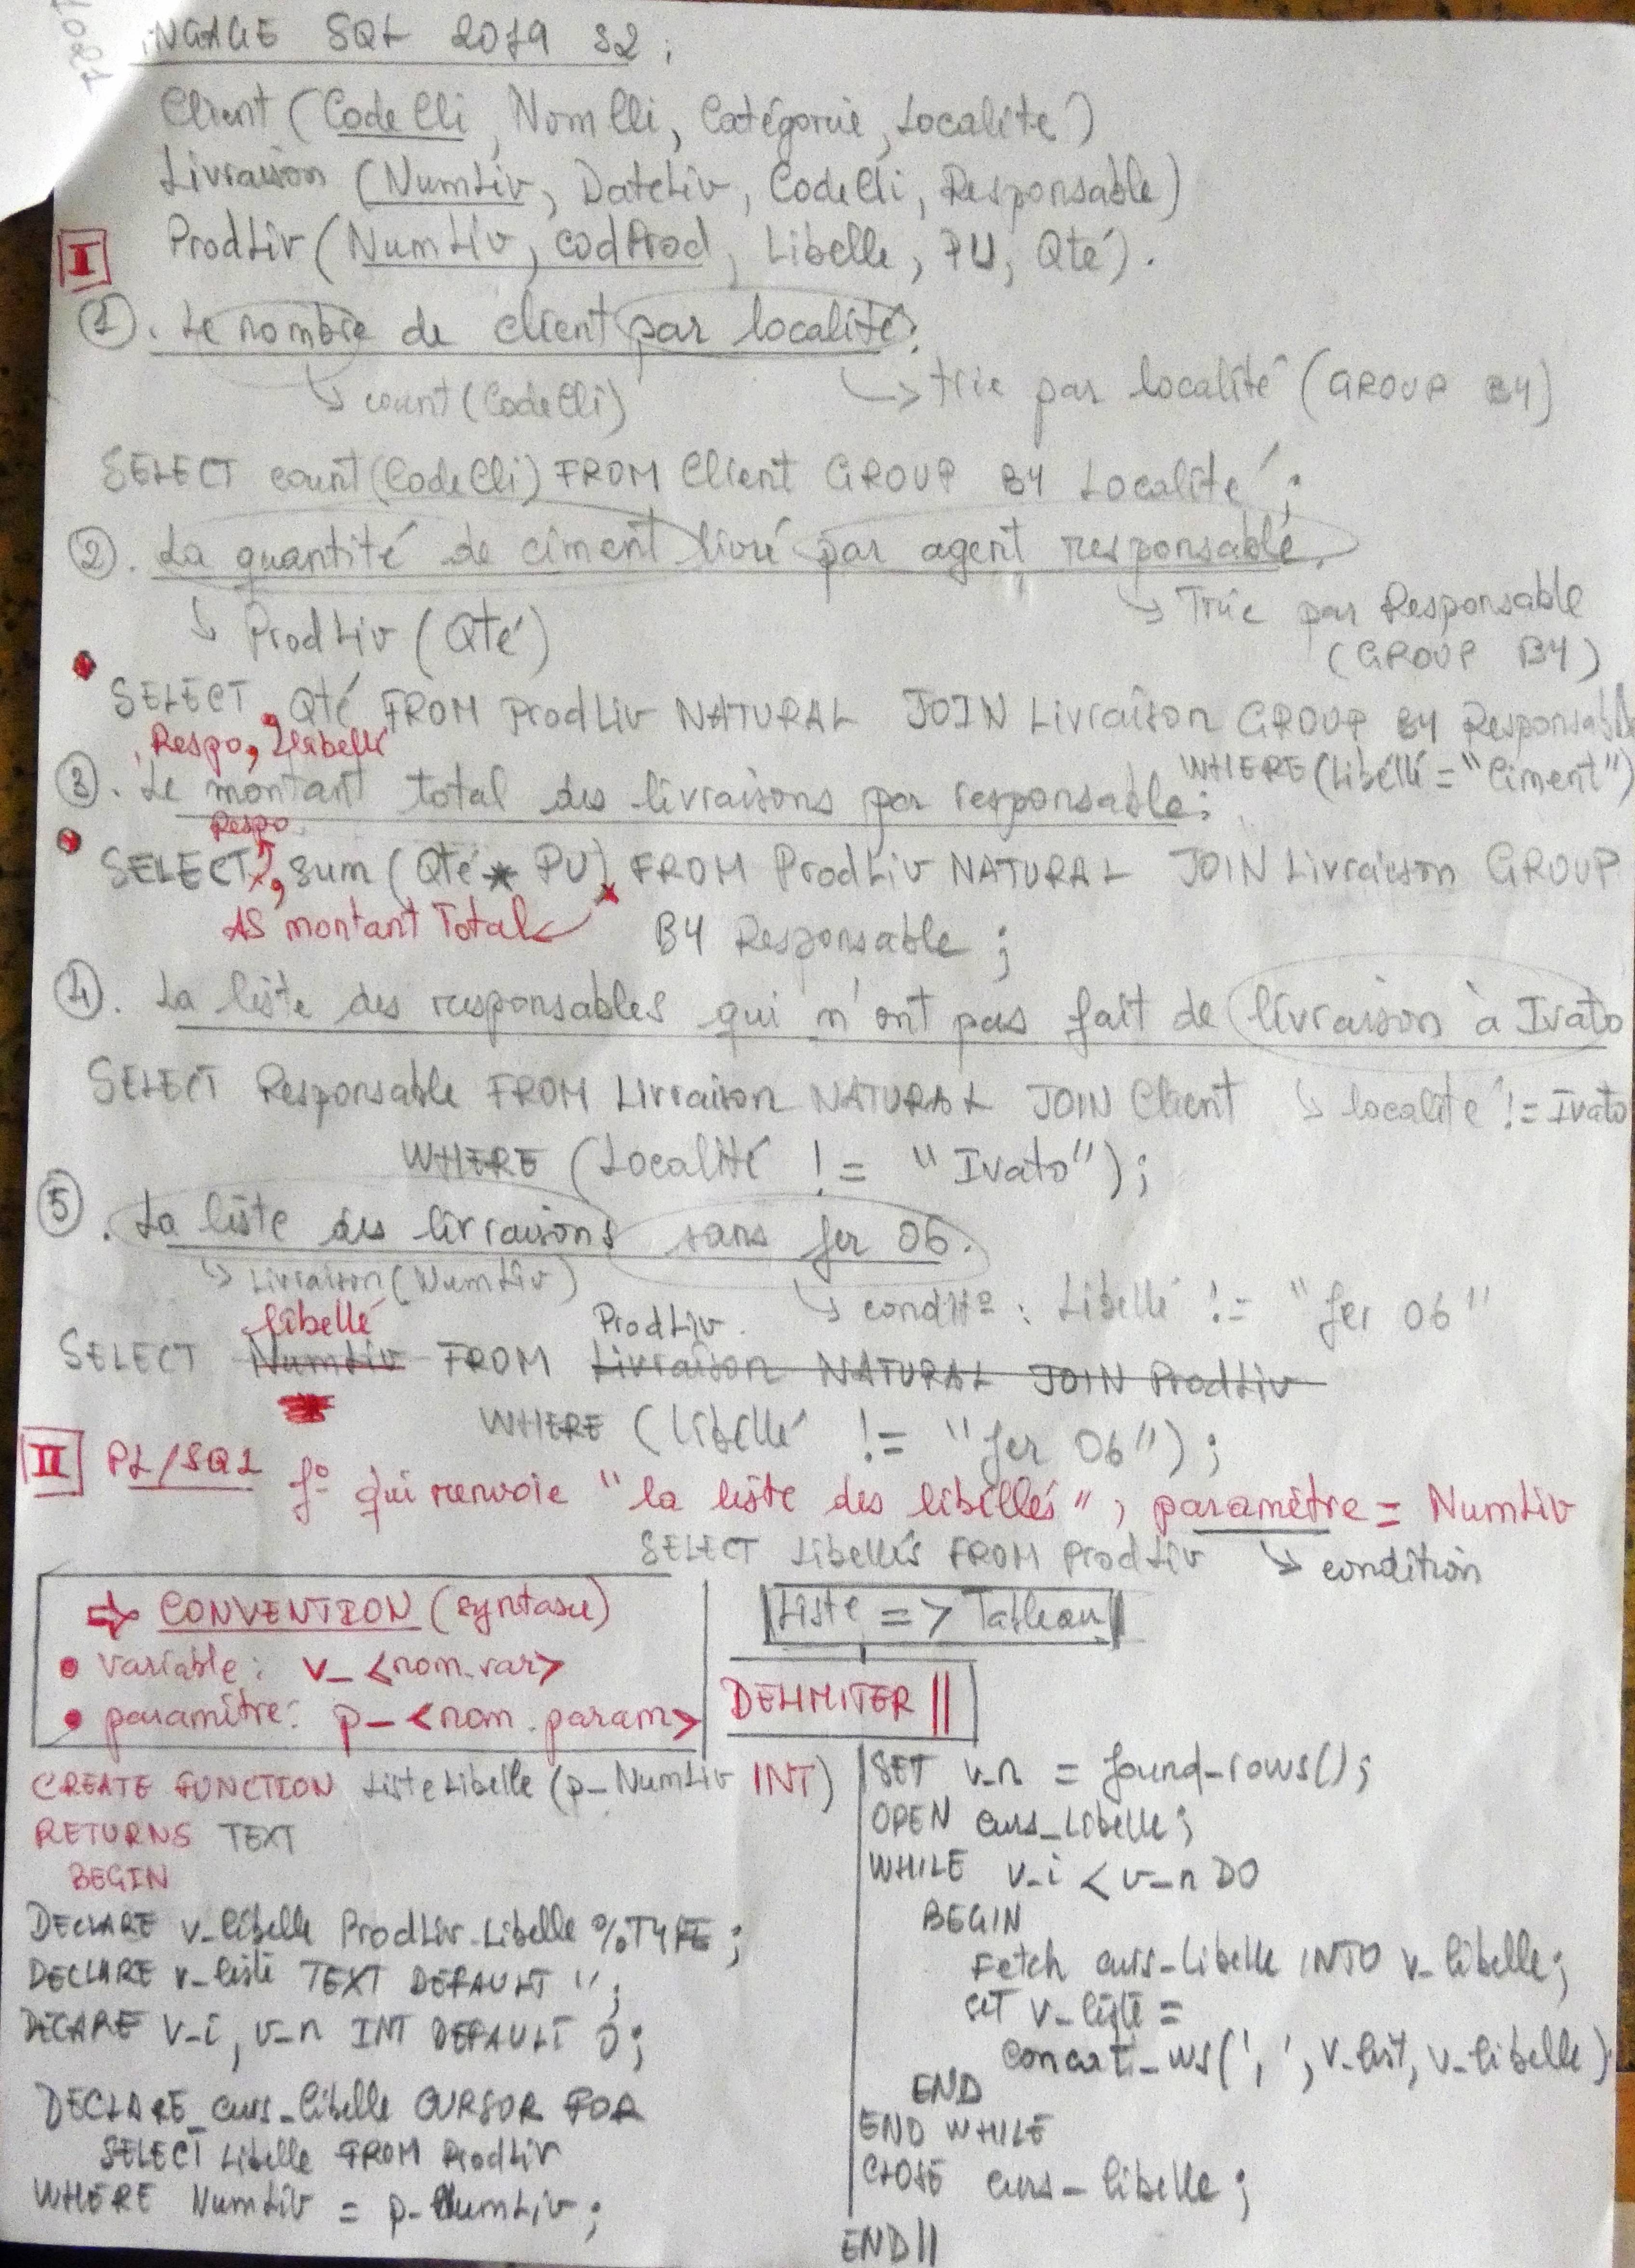 INGAGE SQL 2019 S2 :
Client (CodeCli, NomCli, Catégorie, Localite)
Livraison (NumLiv, DateLiv, CodeCli, Responsable)
I
ProdLiv (NumLiv, codProd, Libelle, PU, Qté).
① . Le nombre de client par localité.
↳ count (CodeCli)
↳ trie par localité (GROUP BY)
SELECT count(CodeCli) FROM Client GROUP BY Localité ;
② . La quantité de ciment livré par agent responsable.
↳ ProdLiv (Qté)
↳ Trie par Responsable
(GROUP BY)
SELECT , Qté FROM ProdLiv NATURAL JOIN Livraison GROUP BY Responsable
, Respo, libellé
WHERE (Libéllé = "Ciment")
③ . Le montant total des livraisons par responsable :
Respo
SELECT , sum (Qté * PU) FROM ProdLiv NATURAL JOIN Livraison GROUP
AS montant Total
BY Responsable ;
④ . La liste des responsables qui n'ont pas fait de livraison à Ivato
SELECT Responsable FROM Livraison NATURAL JOIN Client
↳ localité != Ivato
WHERE (Localité != "Ivato") ;
⑤ . La liste des livraisons sans fer 06.
↳ Livraison (NumLiv)
↳ condit° : Libellé != "fer 06"
libellé
ProdLiv
SELECT NumLiv FROM Livraison NATURAL JOIN ProdLiv
WHERE (libéllé != "fer 06") ;
II PL/SQL f° qui renvoie "la liste des libellés", paramètre = NumLiv
SELECT Libellés FROM ProdLiv
↳ condition
⇒ CONVENTION (syntaxe)
• variable : v_ <nom.var>
• paramètre : p_ <nom.param>
Liste => Tableau
DELIMITER ||
CREATE FUNCTION ListeLibelle (p_NumLiv INT)
RETURNS TEXT
BEGIN
DECLARE v_libelle ProdLiv.Libelle %TYPE ;
DECLARE v_liste TEXT DEFAULT '' ;
DECARE v_i, v_n INT DEFAULT 0 ;
DECLARE curs_libelle CURSOR FOR
SELECT Libelle FROM ProdLiv
WHERE NumLiv = p_NumLiv ;
SET v_n = found_rows();
OPEN curs_libelle ;
WHILE v_i < v_n DO
BEGIN
Fetch curs_libelle INTO v_libelle ;
SET v_liste =
concat_ws(',', v_list, v_libelle)
END
END WHILE
CLOSE curs_libelle ;
END ||